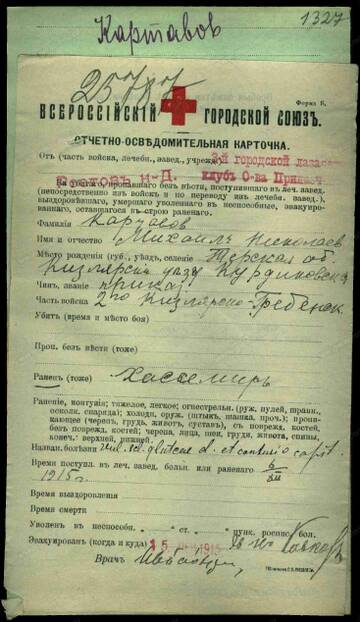 1327
Картавов
25787
Форма Б.
ВСЕРОССІЙСКІЙ ГОРОДСКОЙ СОЮЗЪ.
ОТЧЕТНО-ОСВѢДОМИТЕЛЬНАЯ КАРТОЧКА.
Отъ (часть войска, лечебн. завед., учрежд.) 3-й городской лазар
Ростовъ н-Д. клубъ О-ва Приказч
безъ вѣсти, поступившаго въ леч. завед.
(непосредственно изъ войскъ и по переводу изъ лечебн. завед.),
выздоровѣвшаго, умершаго уволеннаго въ неспособные, эвакуиро-
ваннаго, оставшагося въ строю раненаго.
Фамилія Картавов
Имя и отчество Михаилъ Николаев
Мѣсто рожденія (губ., уѣздъ, селеніе) Терская об.
Кизлярск уезд Курдюковск
Чинъ, званіе приказ
Часть войска 2го Кизлярско-Гребенск
Убитъ (время и мѣсто боя)
Проп. безъ вѣсти (тоже)
Раненъ (тоже)
Раненіе, контузія; тяжелое, легкое; огнестрѣльн. (руж. пулей, шрапн.,
осколк. снаряда); холодн. оруж. (штыкъ, шашка, проч.); прони-
кающее (черепъ, грудь, животъ, суставъ), съ поврежд. костей,
безъ поврежд. костей; черепа, лица, шеи, груди, живота, спины,
конеч.: верхней, нижней.
Назван. болѣзни vul. scl. gluteae d. et contusio capit.
Время поступл. въ леч. завед. больн. или раненаго 6/XII
1915 г.
Время выздоровленія
Время смерти
Уволенъ въ неспособн. „ „ ст. „ пунк. роспис. бол.
Эвакуированъ (когда и куда) 15 1915
Врачъ